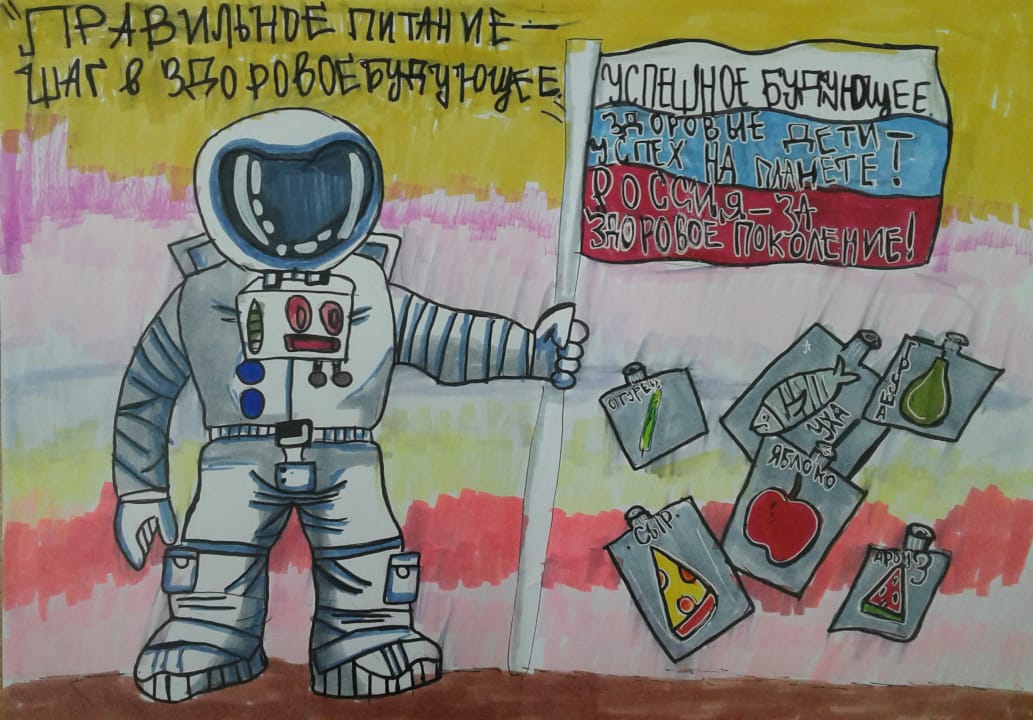 "ПРАВИЛЬНОЕ ПИТАНИЕ –
ШАГ В ЗДОРОВОЕ БУДУЮЩЕЕ"
УСПЕШНОЕ БУДУЮЩЕЕ
ЗДОРОВЫЕ ДЕТИ –
УСПЕХ НА ПЛАНЕТЕ!
РОССИЯ – ЗА
ЗДОРОВОЕ ПОКОЛЕНИЕ!
ОГУРЕЦ
УХА
ГРУША
ЯБЛОКО
СЫР.
АРБУЗ